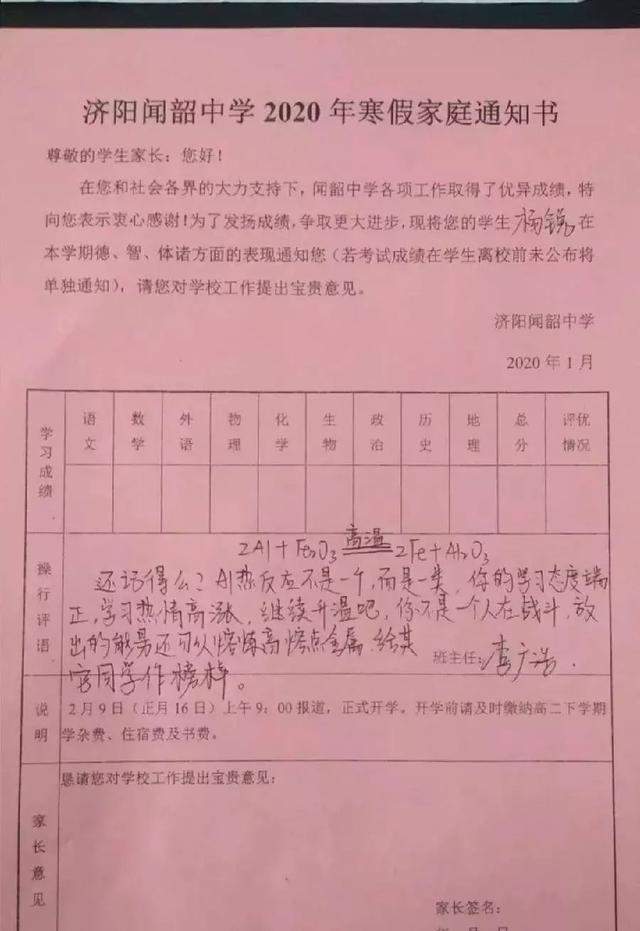 济阳闻韶中学 2020 年寒假家庭通知书
尊敬的学生家长：您好！
在您和社会各界的大力支持下，闻韶中学各项工作取得了优异成绩，特
向您表示衷心感谢！为了发扬成绩，争取更大进步，现将您的学生杨锐在
本学期德、智、体诸方面的表现通知您（若考试成绩在学生离校前未公布将
单独通知），请您对学校工作提出宝贵意见。
济阳闻韶中学
2020 年 1 月
学习成绩 语文 数学 外语 物理 化学 生物 政治 历史 地理 总分 评优情况
操行评语
2Al+Fe₂O₃ 高温 2Fe+Al₂O₃
还记得么？Al热反应不是一个，而是一类，你的学习态度端
正，学习热情高涨，继续升温吧，你不是一个人在战斗，放
出的能量还可以熔炼高熔点金属，给其
它同学作榜样。
班主任：李广浩
说明
2 月 9 日（正月 16 日）上午 9：00 报道，正式开学。开学前请及时缴纳高二下学期
学杂费、住宿费及书费。
家长意见
恳请您对学校工作提出宝贵意见：
家长签名：